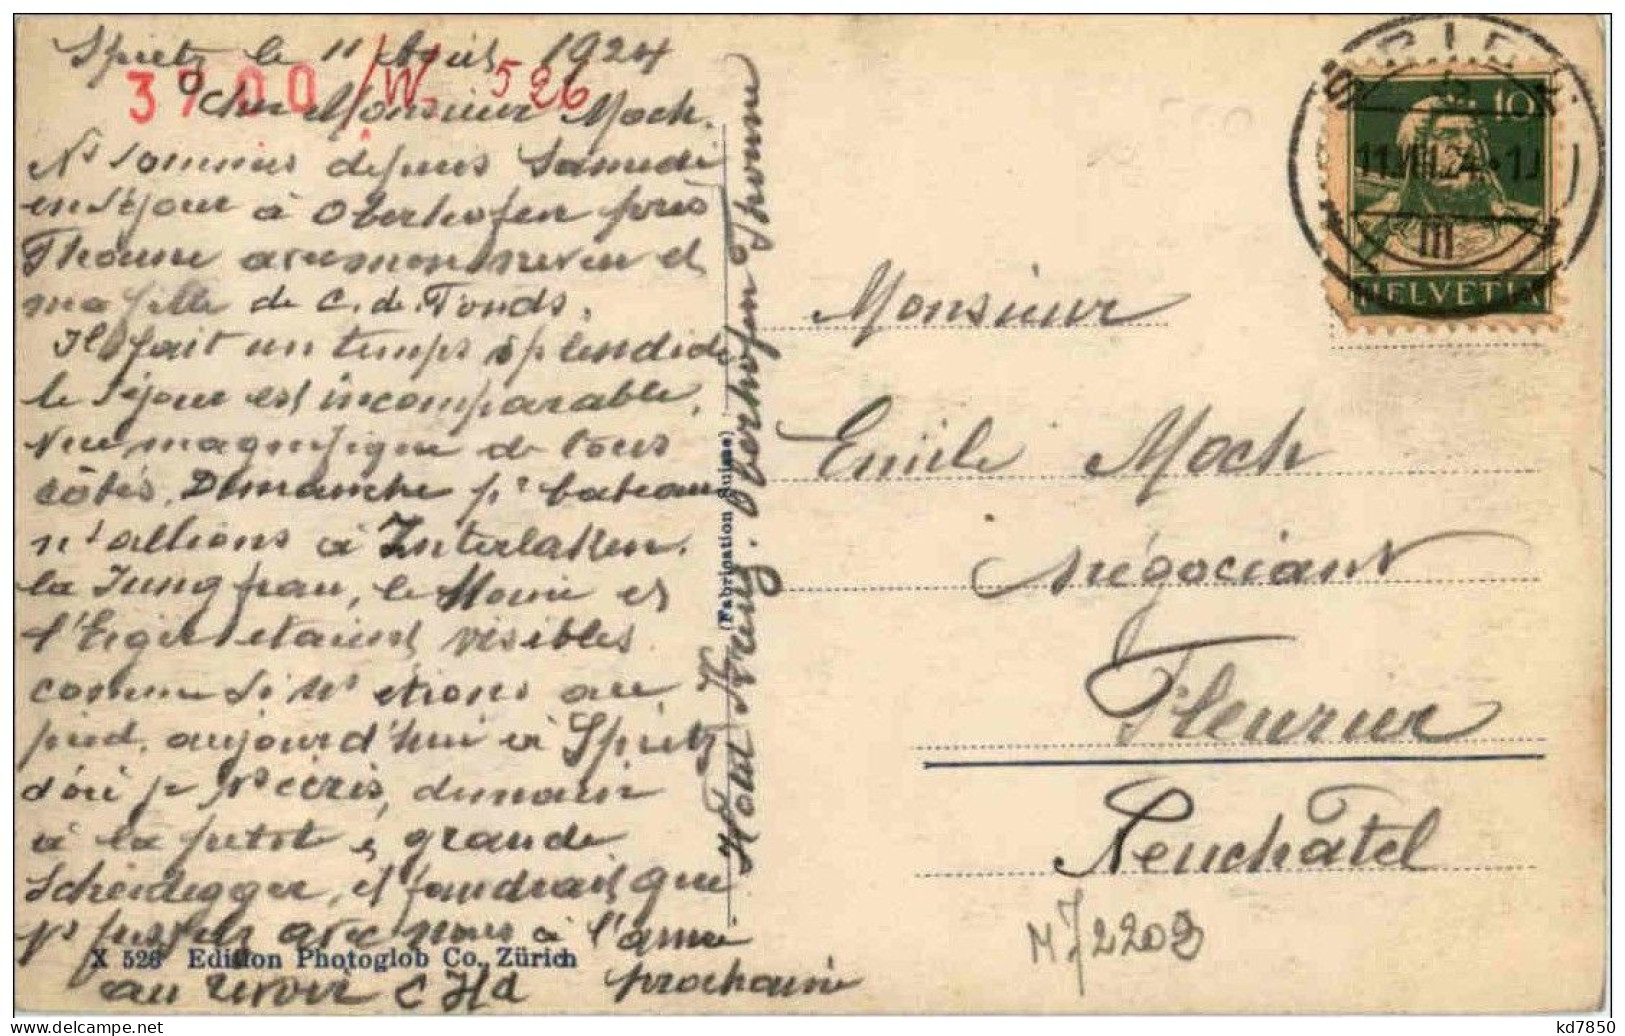 Spiez le 11 Août 1924
3700 /W. 526
Cher Monsieur Moch.
Ns sommes depuis Samedi
en séjour à Oberhofen près
Thoune avec mon neveu et
ma fille de C. de Fonds.
Il fait un temps splendide
le séjour est incomparable,
Vue magnifique de tous
côtés. Dimanche pr bateau
ns allions à Interlaken.
la Jungfrau, le Moine et
l'Eiger étaient visibles
comme si ns étions au
pied. aujourd'hui à Spietz
d'où je vs écris, demain
à la petite & grande
Scheidegger, il faudrait que
vs fussiez avec nous à l'année
prochaine
au revoir C Hd
X 526 Edition Photoglob Co., Zürich
(Fabrication Suisse)
Hôtel Kreuz. Oberhofen Thoune
SPIEZ
11.VIII.24
III
10
HELVETIA
Monsieur
Emile Moch
négociant
Fleurier
Neuchâtel
M72208
kd7850